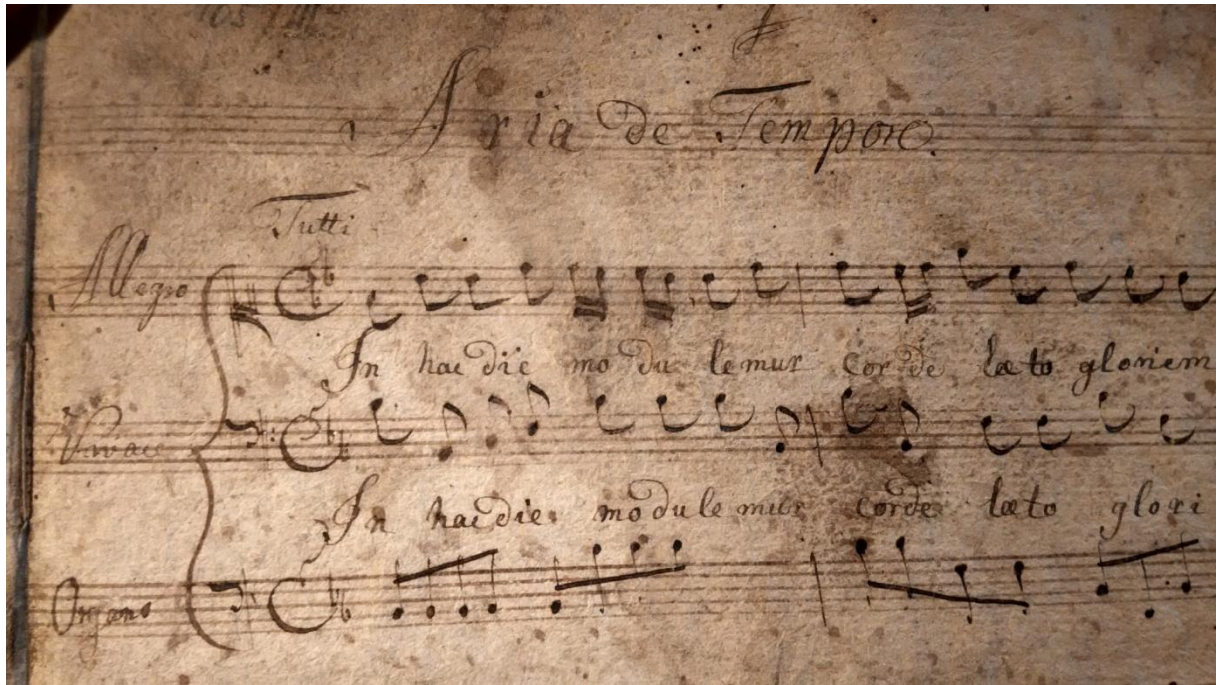 Aria de Tempore.
Tutti
Allegro
In hac die mo du lemur cor de læto gloriem
Vivace
In hac die mo du le mur corde læto glori
Organo